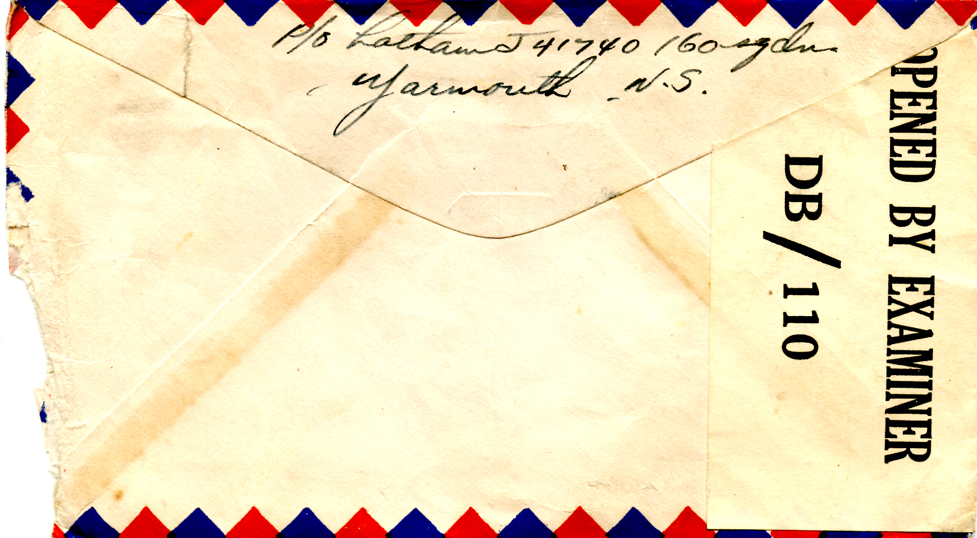 P/O Latham J 41740 160 sqdn.
Yarmouth N.S.
OPENED BY EXAMINER
DB/110